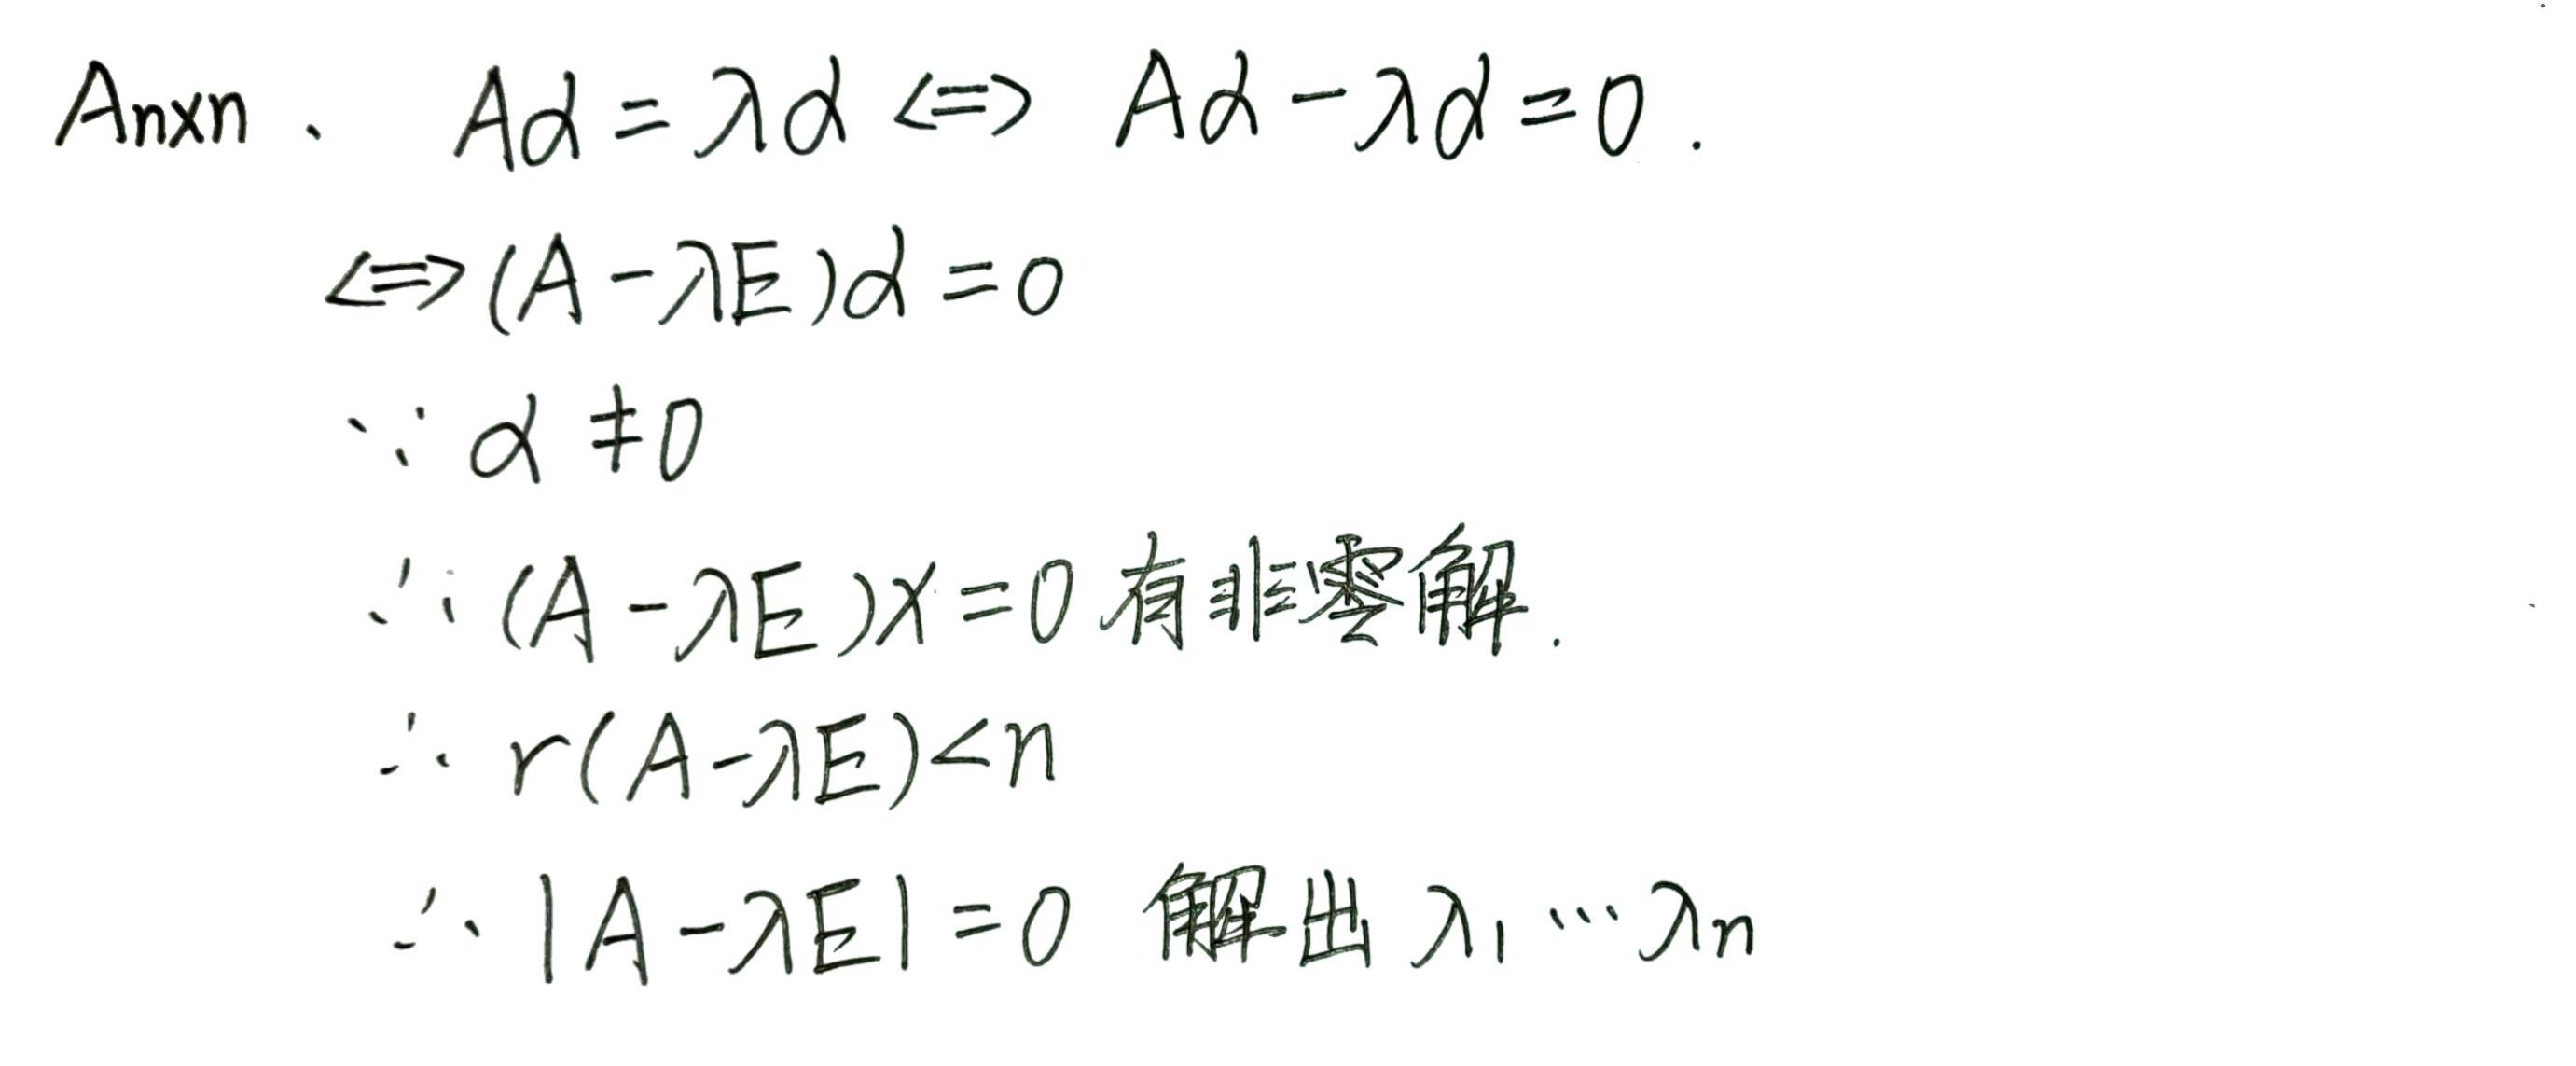 Anxn、 Aα = λα <=> Aα - λα = 0.
<=> (A - λE)α = 0
∵ α ≠ 0
∴ (A - λE)x = 0 有非零解.
∴ r(A-λE)<n
∴ |A - λE| = 0 解出 λ1 … λn